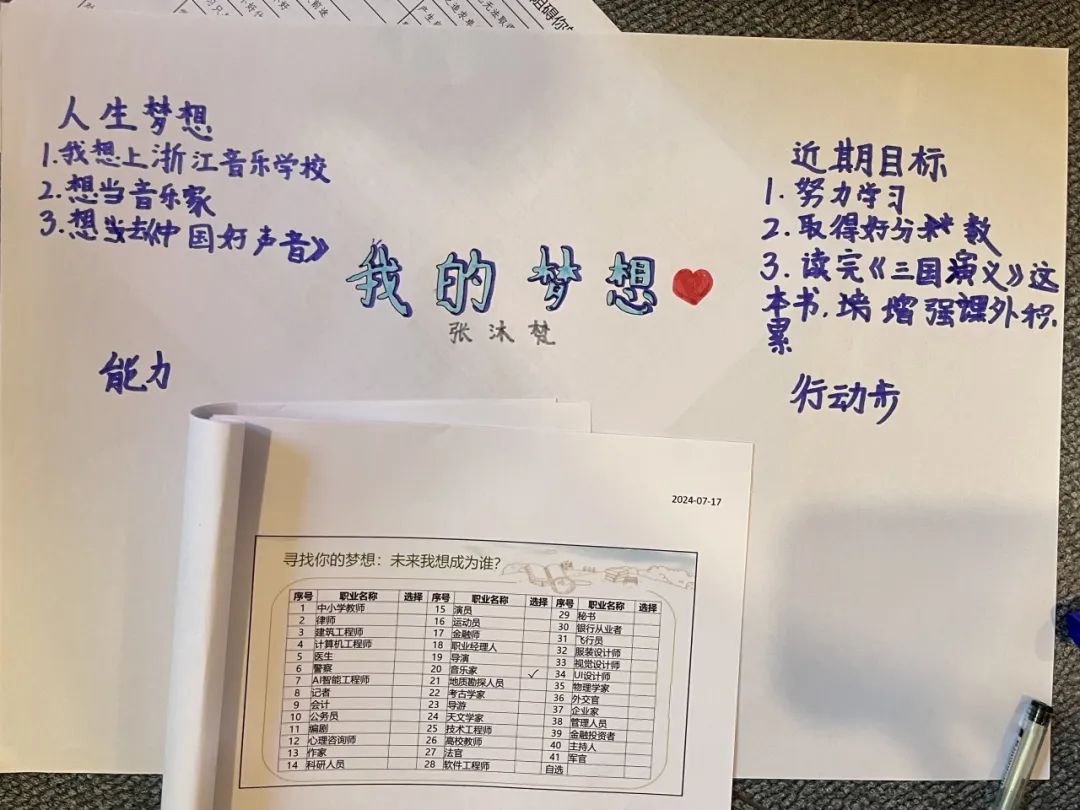 人生梦想
1.我想上浙江音乐学校
2.想当音乐家
3.想去《中国好声音》
近期目标
1.努力学习
2.取得好分数
3.读完《三国演义》这
本书,增强课外积
累
我的梦想
张沐梵
能力
行动步
2024-07-17
寻找你的梦想：未来我想成为谁？
序号 职业名称 选择 序号 职业名称 选择 序号 职业名称 选择
1 中小学教师 15 演员 29 秘书
2 律师 16 运动员 30 银行从业者
3 建筑工程师 17 金融师 31 飞行员
4 计算机工程师 18 职业经理人 32 服装设计师
5 医生 19 导演 33 视觉设计师
6 警察 20 音乐家 ✓ 34 UI设计师
7 AI智能工程师 21 地质勘探人员 35 物理学家
8 记者 22 考古学家 36 外交官
9 会计 23 导游 37 企业家
10 公务员 24 天文学家 38 管理人员
11 编剧 25 技术工程师 39 金融投资者
12 心理咨询师 26 高校教师 40 主持人
13 作家 27 法官 41 军官
14 科研人员 28 软件工程师 自选